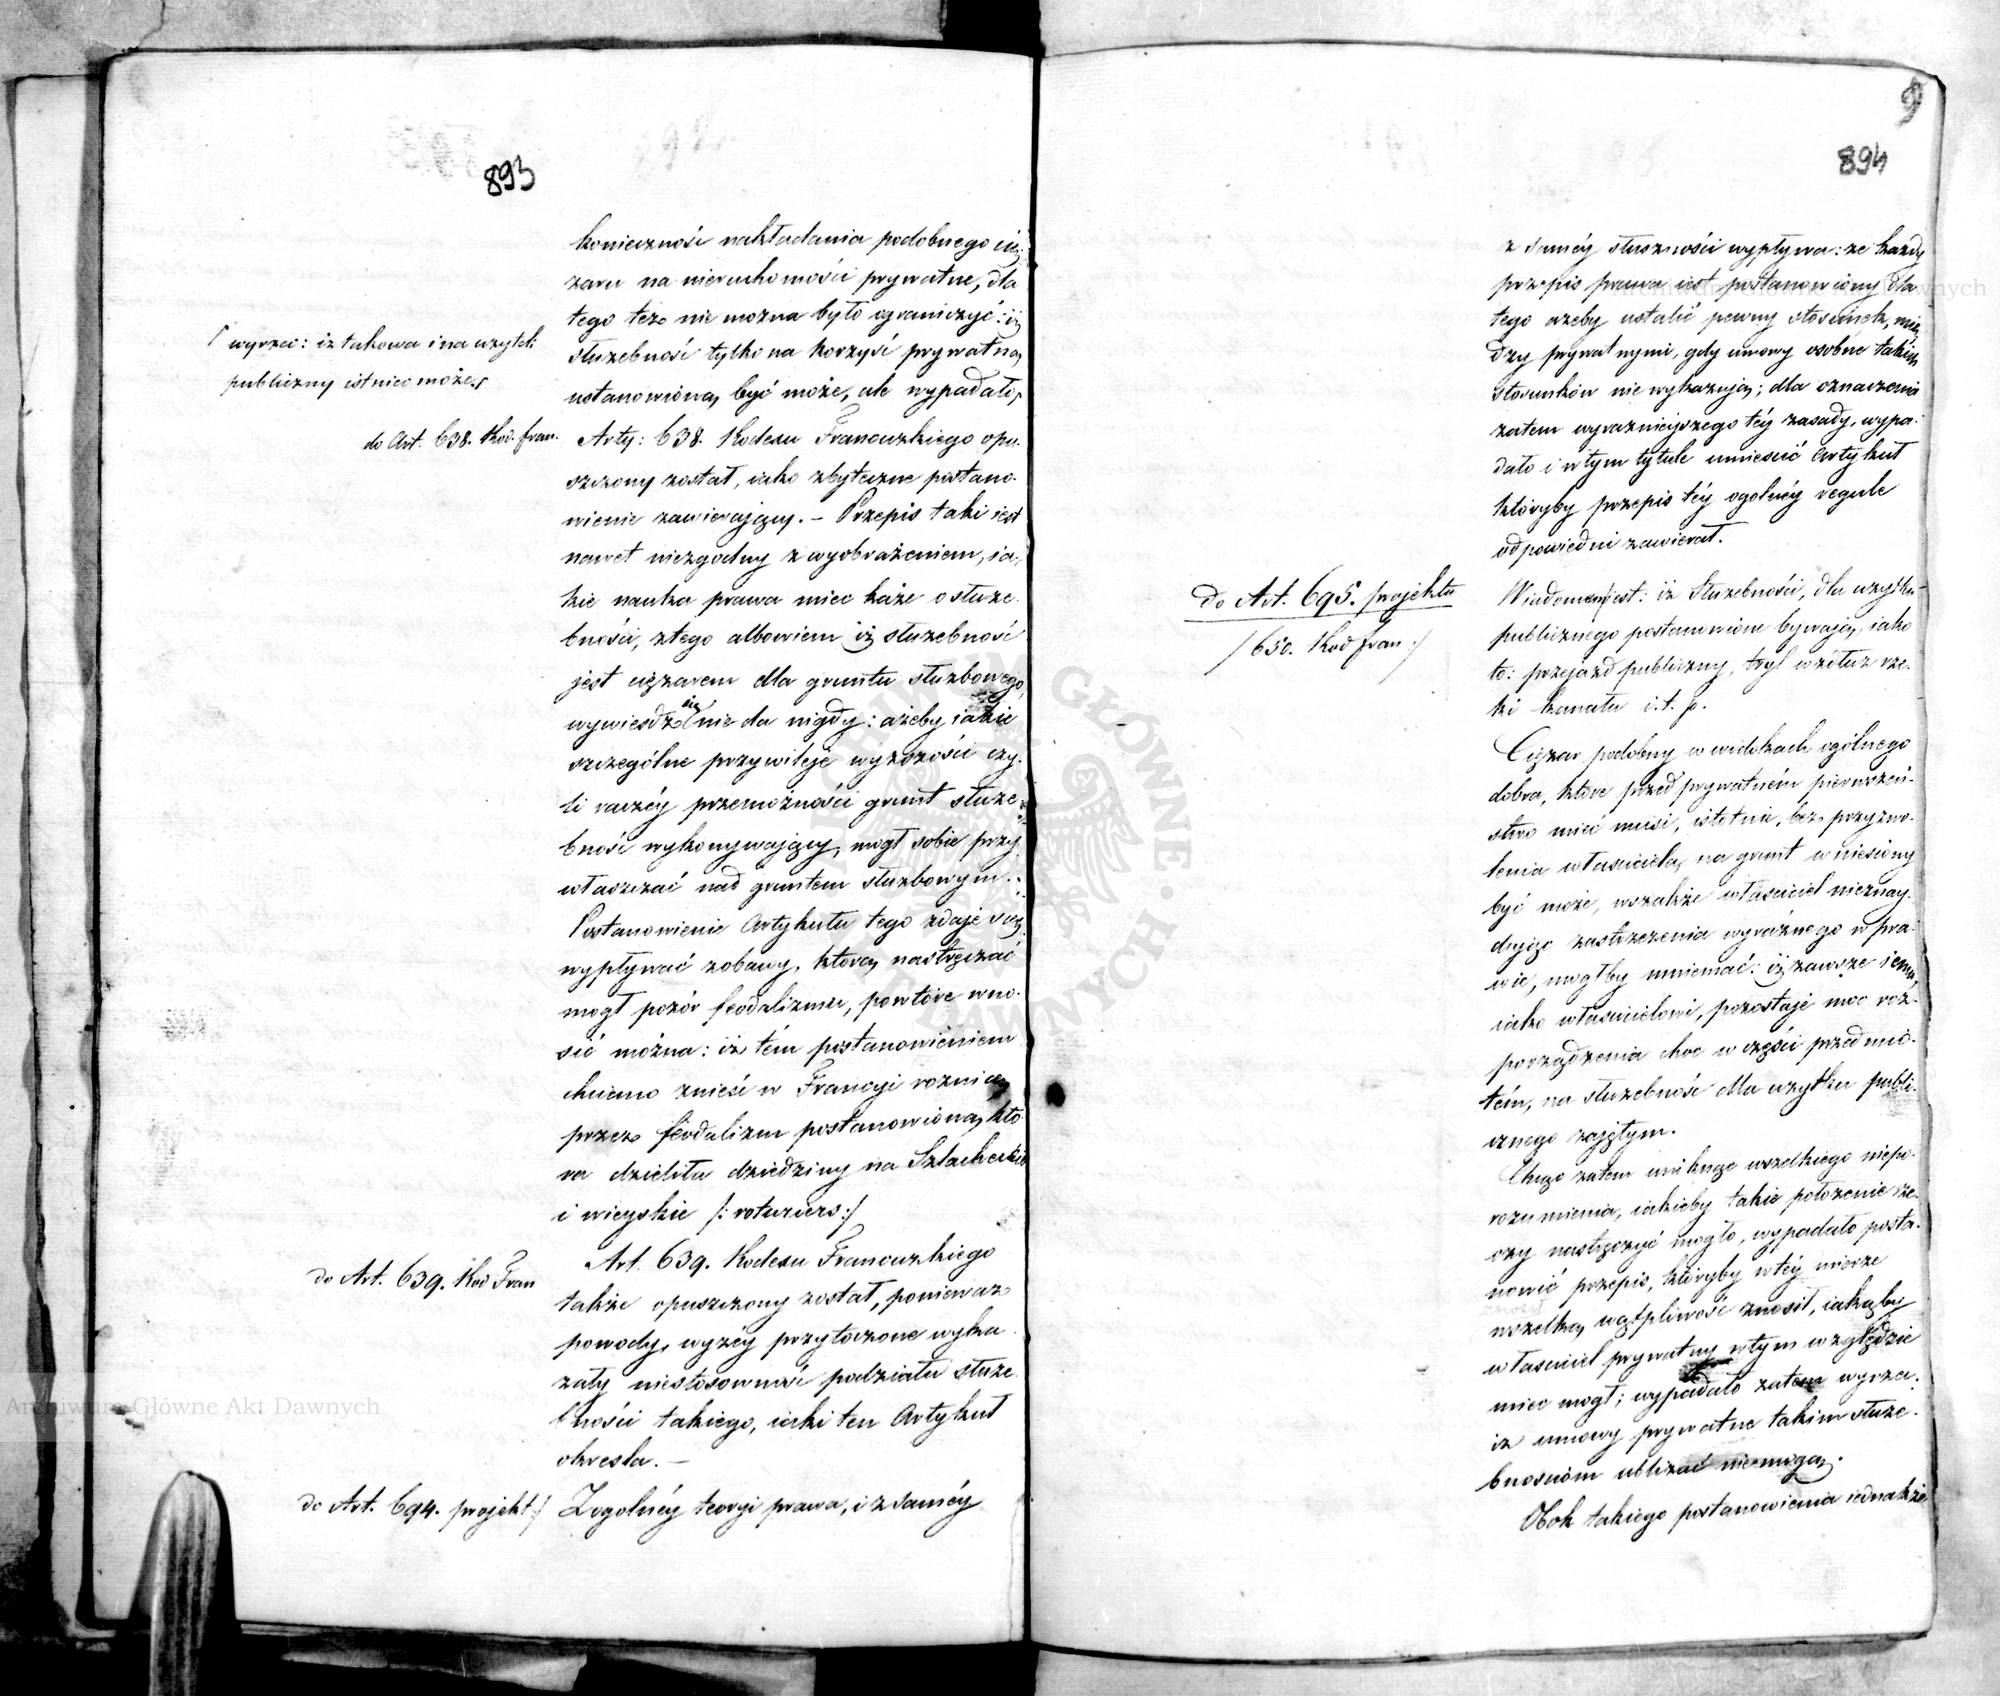 893
konieczność nakładania podobnego cię,
żaru na nieruchomości prywatne, dla
tego też nie można było ograniczyć: iż
służebność tylko na korzyść prywatną
ustanowioną być może, ale wypadało
wyrzec: iż takowa i na użytek
publiczny istnieć może.
do Art. 638. Kod. fran.
Arty: 638. Kodexu Francuzkiego opu-
szczony został, iako zbyteczne postano-
wienie zawierający. – Przepis taki iest
nawet niezgodny z wyobrażeniem, ia-
kie nauka prawa mieć każe o służe-
bności, z tego albowiem iż służebność
jest ciężarem dla gruntu służbowego,
wywieśdź się nie da nigdy: ażeby iakie
szczególne przywileje wyższości czy-
li raczéy przemożności grunt służe-
bność wykonywający, mógł sobie przy
właszczać nad gruntem służbowym.
Postanowienie Artykułu tego zdaje się
wypływać z obawy, którą nastręczać
mógł pozór feodalizmu, powtóre wno-
sić można: iż tém postanowieniem
chciano znieść w Francyi różnicę
przez feodalizm postanowioną, któ
ra dzieliła dziedziny na Szlacheckie
i wieyskie /: roturiers :/
do Art. 639. Kod Fran
Art. 639. Kodexu Francuzkiego
także opuszczony został, ponieważ
powody, wyżéy przytoczone wyka-
zały niestosowność podziału służe-
bności takiego, iaki ten Artykuł
określa. –
do Art. 694. projekt:/
Z ogólnéy teoryi prawa, i z saméy
9
894
z saméy słuszności wypływa: że każdy
przepis prawa iest postanowiony dla
tego ażeby ustalić pewny stosunek, mię,
dzy prywatnymi, gdy umowy osobne takich
stosunków nie wykazują; dla oznaczenia
zatem wyraźniejszego téy zasady, wypa-
dało i w tym tytule umieścić Artykuł
któryby przepis téy ogólnéy regule
odpowiedni zawierał.
do Art. 695. projektu
/650. Kod fran:/
Wiadomem jest: iż Służebności, dla użytku
publicznego postanowione bywają, iako
to: przejazd publiczny, tryl wzdłuż rze-
ki kanału i.t.p.
Ciężar podobny w widokach ogólnego
dobra, które przed prywatném pierwszeń-
stwo mieć musi, istotnie, bez przyzwo-
lenia właściciela, na grunt wniesiony
być może, wszakże właściciel nieznay-
dując zastrzeżenia wyraźnego w pra-
wie, mógłby mniemać: iż zawsze iemu,
iako właścicielowi, pozostaje moc roz-
porządzenia choć w części przedmio-
tém, na służebność dla użytku publi-
cznego zajętym.
Chcąc zatem uniknąć wszelkiego niepo-
rozumienia, iakieby takie położenie rze-
czy nastręczyć mogło, wypadało posta-
nowić przepis, któryby w téy mierze
wszelką wątpliwość znosił, iakąby
właściciel prywatny w tym względzie
mieć mógł; wypadało zatem wyrzec:
iż umowy prywatne takim służe-
bnościom ubliżać nie mogą.
Obok takiego postanowienia iednakże
Archiwum Główne Akt Dawnych